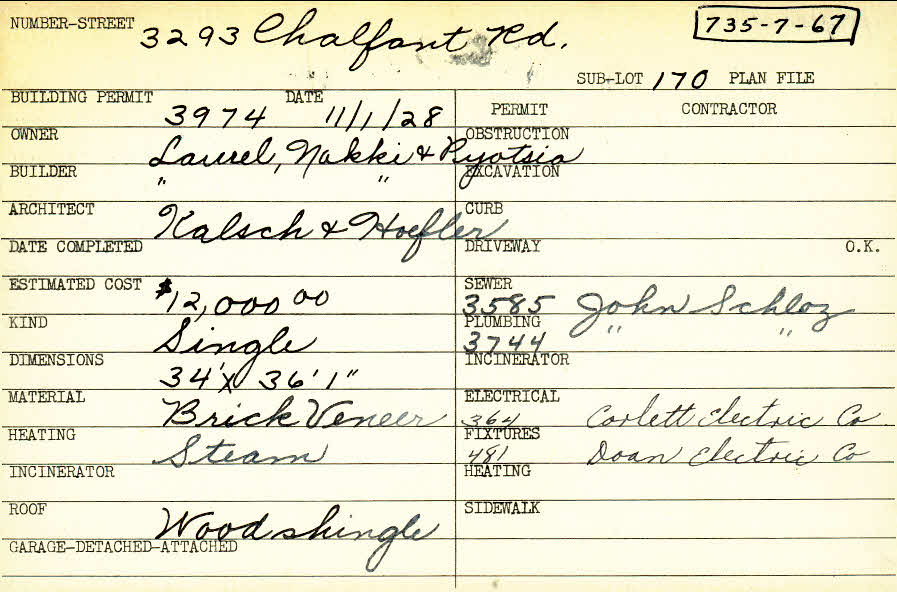 NUMBER-STREET 3293 Chalfant Rd. 735-7-67
SUB-LOT 170 PLAN FILE
BUILDING PERMIT 3974 DATE 11/1/28 PERMIT CONTRACTOR
OWNER Laurel, Nakki & Ryotsia OBSTRUCTION
BUILDER " " EXCAVATION
ARCHITECT Kalsch & Hoefler CURB
DATE COMPLETED DRIVEWAY O.K.
ESTIMATED COST $12,000 00 SEWER 3585 John Schloz
KIND Single PLUMBING 3744 " "
DIMENSIONS 34' X 36' 1" INCINERATOR
MATERIAL Brick Veneer ELECTRICAL 364 Corlett Electric Co.
HEATING Steam FIXTURES 481 Doan Electric Co
INCINERATOR HEATING
ROOF Wood shingle SIDEWALK
GARAGE-DETACHED-ATTACHED